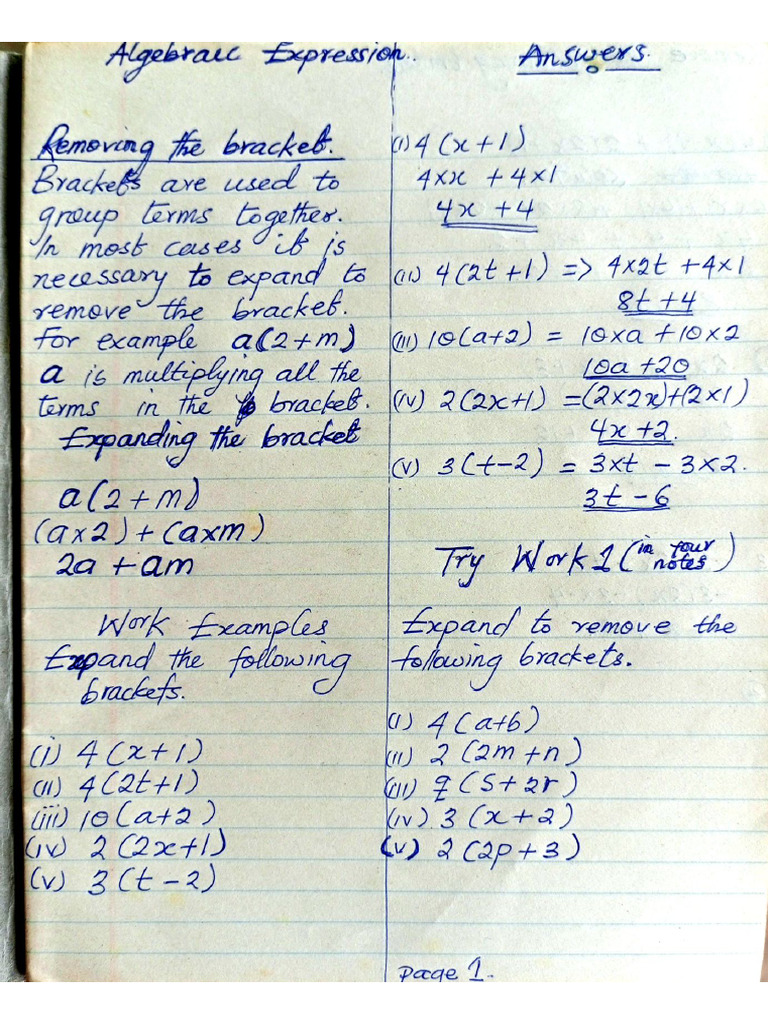 Algebraic Expression.
Removing the bracket.
Brackets are used to
group terms together.
In most cases it is
necessary to expand to
remove the bracket.
For example a(2+m)
a is multiplying all the
terms in the bracket.
Expanding the bracket
a(2+m)
(a×2)+(a×m)
2a + am
Work Examples
Expand the following
brackets.
(i) 4(x+1)
(ii) 4(2t+1)
(iii) 10(a+2)
(iv) 2(2x+1)
(v) 3(t-2)
Answers.
(i) 4(x+1)
4×x + 4×1
4x + 4
(ii) 4(2t+1) => 4×2t + 4×1
8t + 4
(iii) 10(a+2) = 10×a + 10×2
10a + 20
(iv) 2(2x+1) = (2×2x)+(2×1)
4x + 2.
(v) 3(t-2) = 3×t - 3×2.
3t - 6
Try Work 1 (in four notes)
Expand to remove the
following brackets.
(i) 4(a+b)
(ii) 2(2m+n)
(iii) q(5+2r)
(iv) 3(x+2)
(v) 2(2p+3)
page 1.